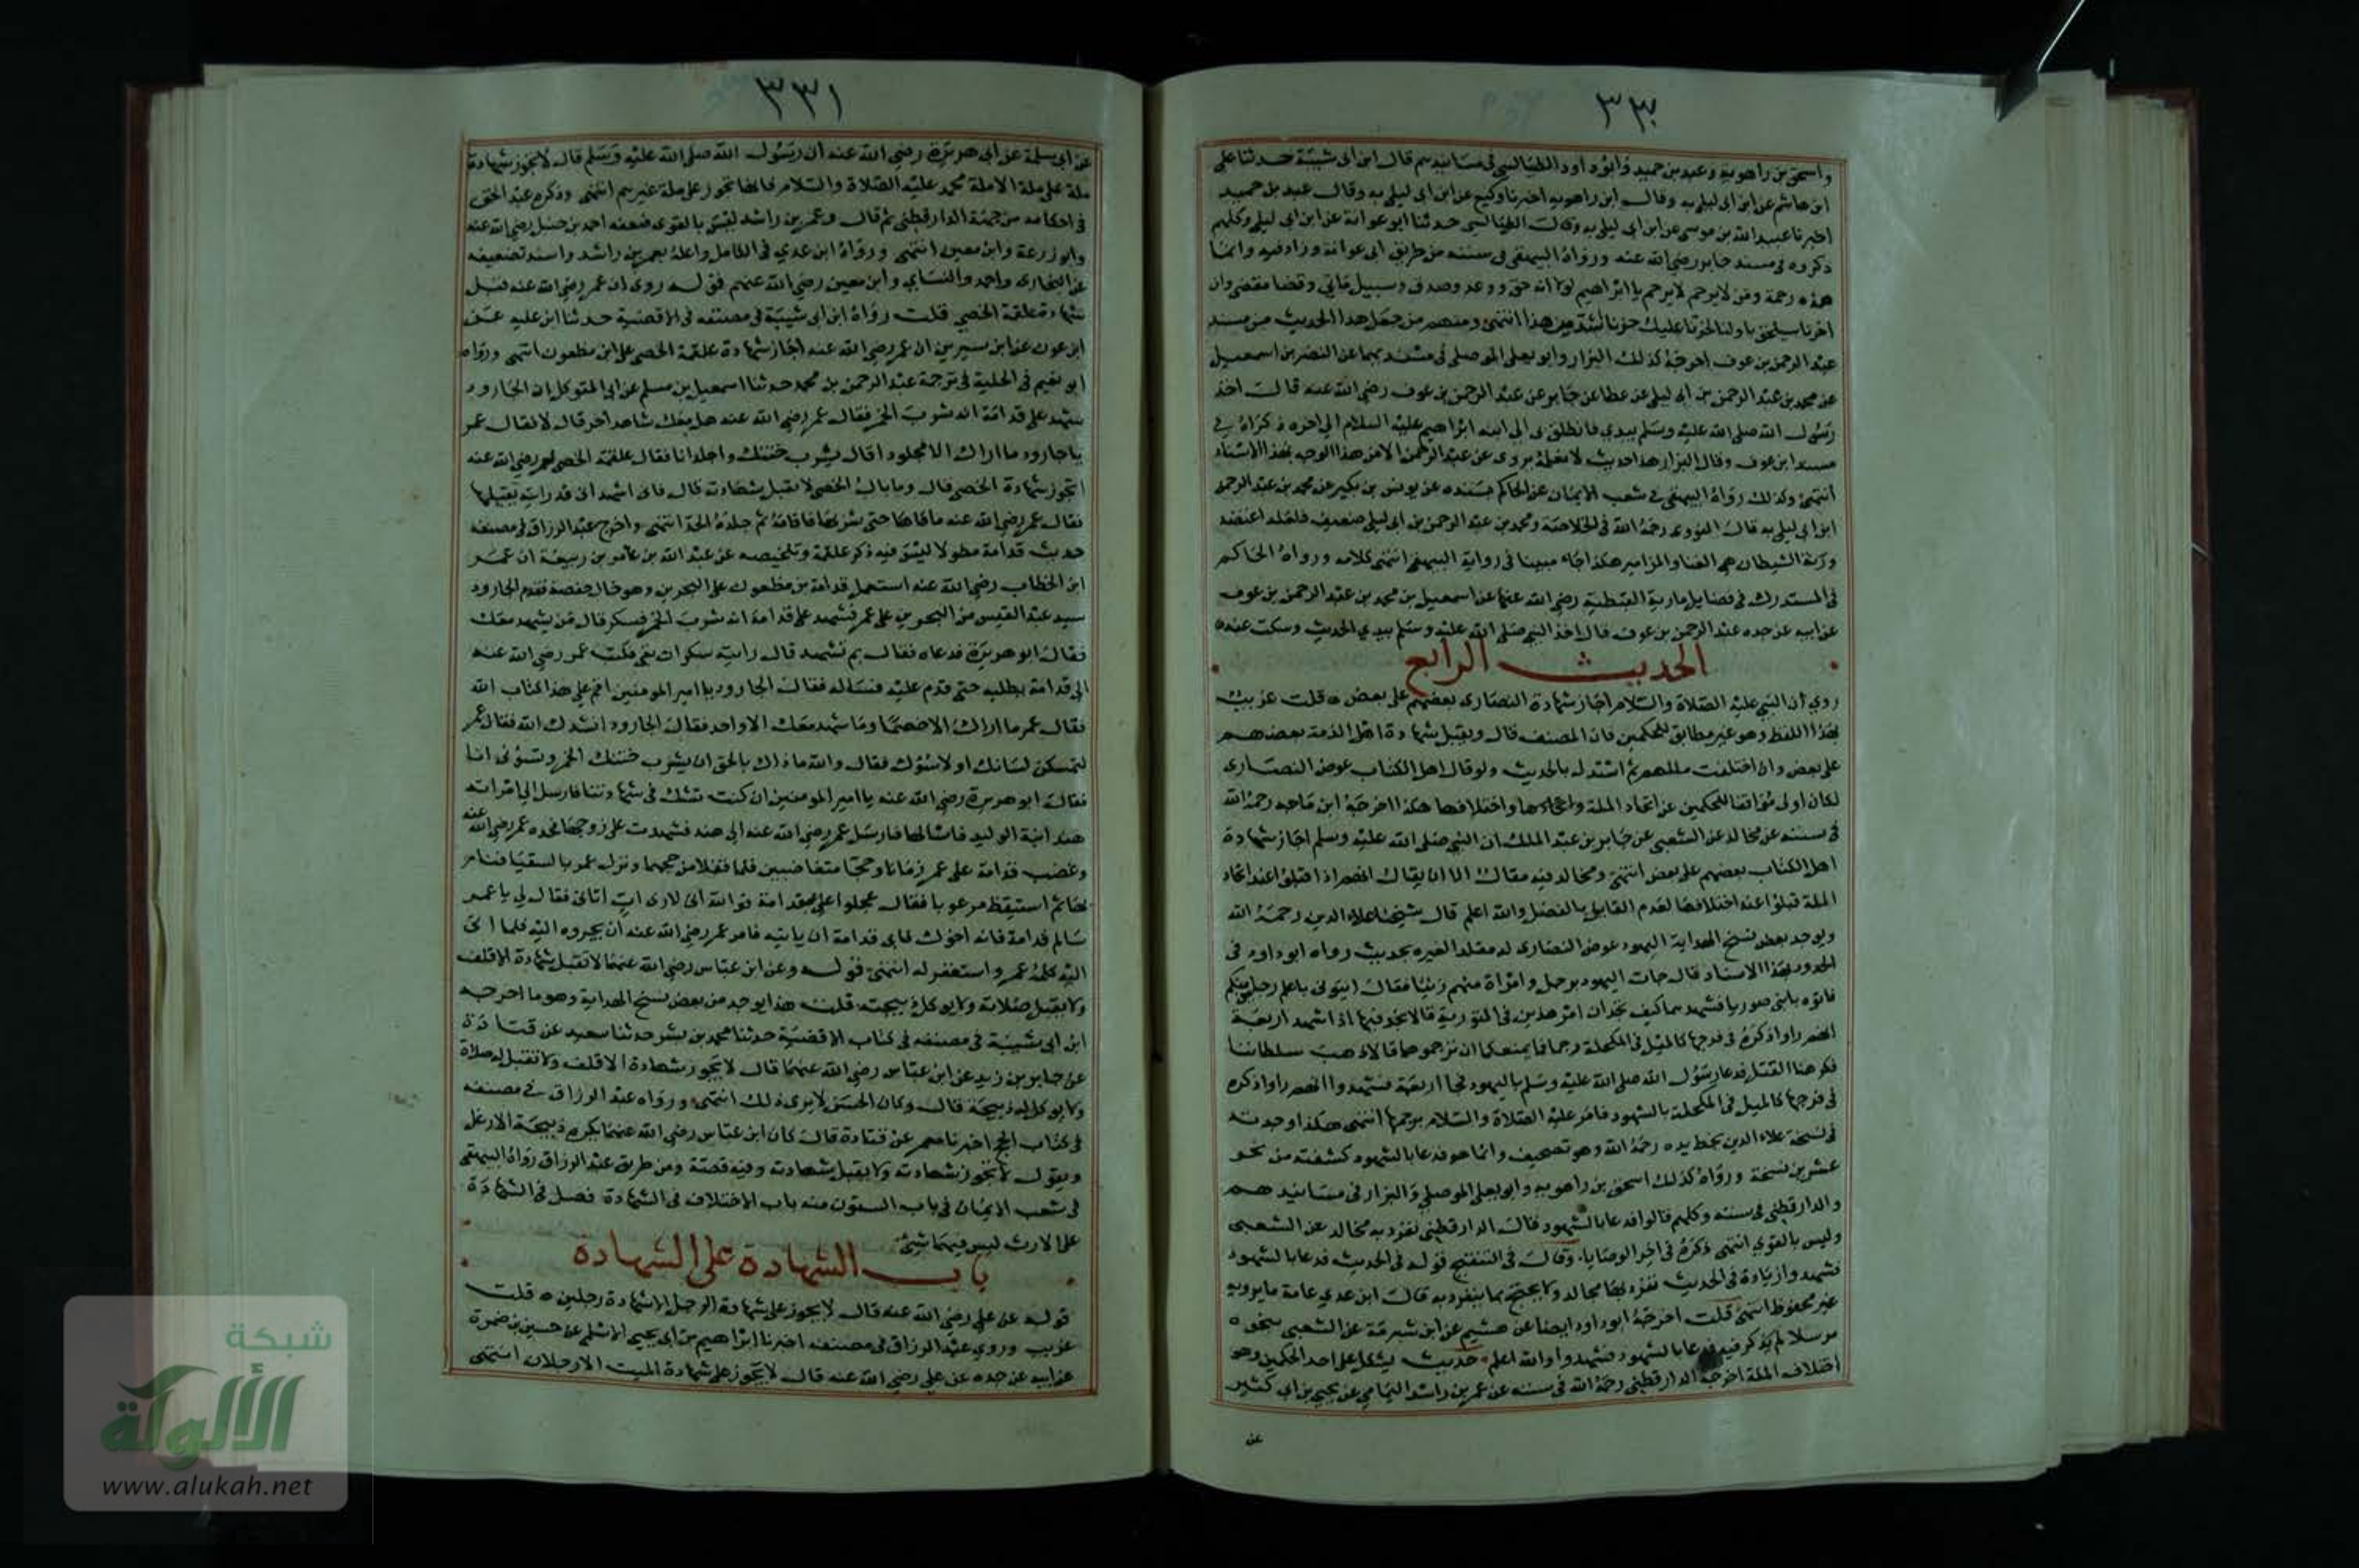 ٣٣٠
واسحق بن راهويه وعبد بن حميد وابو داود الطيالسي في مسانيدهم قال ابن ابي شيبة حدثنا علي
ابن هاشم عن ابن ابي ليلى به وقال ابن راهويه اخبرنا وكيع عن ابن ابي ليلى به وقال عبد بن حميد
اخبرنا عبيد الله بن موسى عن ابن ابي ليلى به وقال الطيالسي حدثنا ابو عوانة عن ابن ابي ليلى وكلهم
ذكروه في مسند جابر رضي الله عنه ورواه البيهقي في سننه من طريق ابي عوانة وزاد فيه وانما
هذه رحمة ومن لا يرحم لا يرحم يا ابراهيم لولا انه حق ووعد وصدق وسبيل ماتي وقضا مقضي وان
اخرنا سيلحق باولنا لحزنا عليك حزنا اشد من هذا انتهى ومنهم من جعل هذا الحديث من مسند
عبد الرحمن بن عوف اخرجه كذلك البزار وابو يعلى الموصلي في مسنديهما عن النضر بن اسمعيل
عن محمد بن عبد الرحمن بن ابي ليلى عن عطا عن جابر عن عبد الرحمن بن عوف رضي الله عنه قال اخذ
رسول الله صلى الله عليه وسلم بيدي فانطلق بي الى ابنه ابراهيم عليه السلام الى اخره ذكراه في
مسند ابن عوف وقال البزار هذا حديث لا نعلمه يروى عن عبد الرحمن الا من هذا الوجه بهذا الاسناد
انتهى وكذلك رواه البيهقي في شعب الايمان عن الحاكم بسنده عن يونس بن بكير عن محمد بن عبد الرحمن
ابن ابي ليلى به قال النووي رحمه الله في الخلاصة ومحمد بن عبد الرحمن بن ابي ليلى ضعيف فلعله اعتضد
ورنة الشيطان هي الغنا والمزامير هكذا جاء مبينا في رواية البيهقي انتهى كلامه ورواه الحاكم
في المستدرك في فضايل مارية القبطية رضي الله عنها عن اسمعيل بن محمد بن عبد الرحمن بن عوف
عن ابيه عن جده عبد الرحمن بن عوف قال اخذ النبي صلى الله عليه وسلم بيدي الحديث وسكت عنه
الحديث الرابع
روي ان النبي عليه الصلاة والسلام اجاز شهادة النصارى بعضهم على بعض قلت غريب
بهذا اللفظ وهو غير مطابق للحكمين فان المصنف قال ويقبل شهادة اهل الذمة بعضهم
على بعض وان اختلفت مللهم ثم استدل بالحديث ولو قال اهل الكتاب عوض النصارى
لكان اولى موافقا للحكمين عن اتحاد الملة واختلافها هكذا اخرجه ابن ماجه رحمه الله
في سننه عن مجالد عن الشعبي عن جابر بن عبد الملك ان النبي صلى الله عليه وسلم اجاز شهادة
اهل الكتاب بعضهم على بعض انتهى ومجالد فيه مقال الا ان يقال انهم اذا قبلوا عند اتحاد
الملة قبلوا عند اختلافها لعدم القايل بالفصل والله اعلم قال شيخنا علاء الدين رحمه الله
ويوجد بعض نسخ الهداية اليهود عوض النصارى لد مقلد الغيره بحديث رواه ابو داود في
الحدود بهذا الاسناد قال جات اليهود برجل وامراة منهم زنيا فقال ايتوني باعلم رجلين منكم
فاتوه بابني صوريا فنشدهما كيف تجدان امر هذين في التورية قالا نجد فيها اذا شهد اربعة
انهم راوا ذكره في فرجها كالميل في المكحلة رجما قال فما يمنعكما ان ترجموهما قالا ذهب سلطاننا
فكرهنا القتل فدعا رسول الله صلى الله عليه وسلم باليهود فجا اربعة فشهدوا انهم راوا ذكره
في فرجها كالميل في المكحلة بالشهود فامر عليه الصلاة والسلام برجمها انتهى هكذا وجدته
في نسخة علاء الدين بخط يده رحمه الله وهو تصحيف وانما هو فدعا بالشهود كشفته من نحو
عشرين نسخة ورواه كذلك اسحق بن راهويه وابو يعلى الموصلي والبزار في مسانيدهم
والدارقطني في سننه وكلهم قالوا فدعا بالشهود قال الدارقطني تفرد به مجالد عن الشعبي
وليس بالقوي انتهى ذكره في اخر الوصايا وقال في التنقيح قوله في الحديث فدعا بالشهود
فشهدوا زيادة في الحديث تفرد بها مجالد ولا يحتج بما ينفرد به قال ابن عدي عامة ما يرويه
غير محفوظ انتهى قلت اخرجه ابو داود ايضا عن هشيم عن ابن شبرمة عن الشعبي بنحوه
مرسلا لم يذكر فيه فدعا بالشهود فشهدوا والله اعلم حديث يشكل على احد الحكمين وهو
اختلاف الملة اخرجه الدارقطني رحمه الله في سننه عن عمر بن راشد اليمامي عن يحيى بن ابي كثير
عن
٣٣١
عن ابي سلمة عن ابي هريرة رضي الله عنه ان رسول الله صلى الله عليه وسلم قال لا تجوز شهادة
ملة على ملة الا ملة محمد عليه الصلاة والسلام فانها تجوز على ملة غيرهم انتهى وذكره عبد الحق
في احكامه من جهة الدارقطني ثم قال وعمر بن راشد ليس بالقوي ضعفه احمد بن حنبل رضي الله عنه
وابو زرعة وابن معين انتهى ورواه ابن عدي في الكامل واعله بعمر بن راشد واسند تضعيفه
عن البخاري واحمد والنسائي وابن معين رضي الله عنهم قوله روي ان عمر رضي الله عنه قبل
شهادة علقمة الخصي قلت رواه ابن ابي شيبة في مصنفه في الاقضية حدثنا ابن علية عن
ابن عون عن ابن سيرين ان عمر رضي الله عنه اجاز شهادة علقمة الخصي على ابن مظعون انتهى ورواه
ابو نعيم في الحلية في ترجمة عبد الرحمن بن محمد حدثنا اسمعيل بن مسلم عن ابي المتوكل ان الجارود
شهد على قدامة انه شرب الخمر فقال عمر رضي الله عنه هل معك شاهد اخر قال لا فقال عمر
يا جارود ما اراك الا مجلودا قال يشرب ختنك واجلد انا فقال علقمة الخصي لعمر رضي الله عنه
اتجوز شهادة الخصي قال وما بال الخصي لا تقبل شهادته قال فاني اشهد اني قد رايته يقيئها
فقال عمر رضي الله عنه ما قاءها حتى شربها فاقامه ثم جلده الحد انتهى واخرج عبد الرزاق في مصنفه
حديث قدامة مطولا ليس فيه ذكر علقمة وتلخيصه عن عبد الله بن عامر بن ربيعة ان عمر
ابن الخطاب رضي الله عنه استعمل قدامة بن مظعون على البحرين وهو خال حفصة فقدم الجارود
سيد عبد القيس من البحرين على عمر فشهد على قدامة انه شرب الخمر فسكر قال من يشهد معك
فقال ابو هريرة فدعاه فقال بم تشهد قال رايته سكران يقي فكتب عمر رضي الله عنه
الى قدامة يطلبه حتى قدم عليه فساله فقال الجارود يا امير المومنين اقم على هذا كتاب الله
فقال عمر ما اراك الا خصما وما شهد معك الا واحد فقال الجارود انشدك الله فقال عمر
لتمسكن لسانك او لاسؤك فقال والله ما ذاك بالحق ان يشرب ختنك الخمر وتسؤني انا
فقال ابو هريرة رضي الله عنه يا امير المومنين ان كنت تشك في شهادتنا فارسل الى امراته
هند ابنة الوليد فاسالها فارسل عمر رضي الله عنه الى هند فشهدت على زوجها فحده عمر رضي الله عنه
وغضب قدامة على عمر زمانا وحجا متغاضبين فلما قفلا من حجهما ونزل عمر بالسقيا فنام
بها ثم استيقظ مرعوبا فقال عجلوا علي بقدامة فوالله اني لارى ات اتاني فقال لي يا عمر
سالم قدامة فانه اخوك فابى قدامة ان ياتيه فامر عمر رضي الله عنه ان يجروه اليه فلما اتى
اليه كلمه عمر واستغفر له انتهى قوله وعن ابن عباس رضي الله عنهما لا تقبل شهادة الاقلف
ولا يقبل صلاته ولا يوكل ذبيحته قلت هذا يوجد من بعض نسخ الهداية وهو ما اخرجه
ابن ابي شيبة في مصنفه في كتاب الاقضية حدثنا محمد بن بشر حدثنا سعيد عن قتادة
عن جابر بن زيد عن ابن عباس رضي الله عنهما قال لا يجوز شهادة الاقلف ولا تقبل له صلاة
ولا يوكل له ذبيحة قال وكان الحسن لا يرى ذلك انتهى ورواه عبد الرزاق في مصنفه
في كتاب الحج اخبرنا معمر عن قتادة قال كان ابن عباس رضي الله عنهما يكره ذبيحة الارغل
ويقول لا تجوز شهادته ولا يقبل شهادته وفيه قصة ومن طريق عبد الرزاق رواه البيهقي
في شعب الايمان في باب الستون منه باب الاختلاف في الشهادة فصل في الشهادة
على الارث ليس فيهما شيئ
باب الشهادة على الشهادة
قوله عن علي رضي الله عنه قال لا يجوز على شهادة الرجل الا شهادة رجلين قلت
غريب وروى عبد الرزاق في مصنفه اخبرنا ابراهيم بن ابي يحيى الاسلمي عن حسين بن ضمرة
عن ابيه عن جده عن علي رضي الله عنه قال لا يجوز على شهادة الميت الا رجلان انتهى
شبكة
الألوكة
www.alukah.net